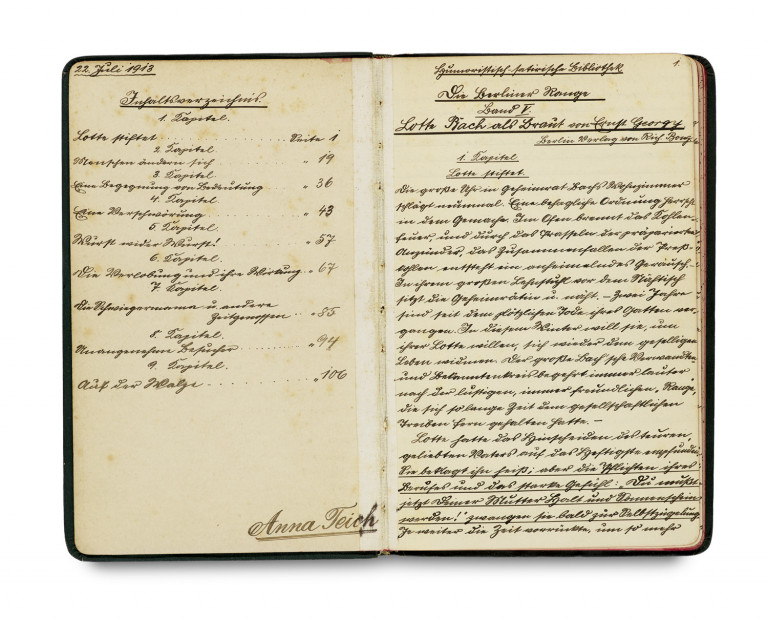 22. Juli 1913
Inhaltsverzeichnis.
1. Kapitel.
Lotte stiftet . . . . . . . . . . Seite 1
2. Kapitel.
Menschen ändern sich . . . . . . . . „ 19
3. Kapitel.
Eine Begegnung von Bedeutung . . . . „ 36
4. Kapitel.
Eine Verschwörung . . . . . . . . „ 43
5. Kapitel.
Wurst wider Wurst! . . . . . . . . „ 57
6. Kapitel.
Die Verlobung und ihre Wirkung . . „ 67
7. Kapitel.
Die Schwiegermama u. andere
Zeitgenossen . . „ 85
8. Kapitel.
Unangenehme Besucher . . . . . . „ 94
9. Kapitel.
Auf der Walze . . . . . . . . „ 106
Anna Teich
1
Humoristisch-satirische Bibliothek
Die Berliner Range
Band V.
Lotte Bach als Braut von Ernst Georgy
Berlin Verlag von Rich. Bong.
1. Kapitel.
Lotte stiftet.
Die große Uhr in Geheimrat Bachs Wohnzimmer
schlägt neunmal. Eine behagliche Ordnung herrscht
in dem Gemache. Im Ofen brennt das Kohlen-
feuer, und durch das Prasseln der präparierten
Anzünder, das Zusammenfallen der Preß-
kohlen entsteht ein anheimelndes Geräusch.
In ihrem großen Lehnstuhl vor dem Nähtisch
sitzt die Geheimrätin u. näht. – Zwei Jahre
sind seit dem plötzlichen Tode ihres Gatten ver-
gangen. In diesem Winter will sie, um
ihrer Lotte willen, sich wieder dem geselligen
Leben widmen. Der große Bach'sche Verwandten
und Bekanntenkreis begehrt immer lauter
nach der lustigen, immer freundlichen, „Range",
die sich so lange Zeit dem gesellschaftlichen
Treiben fern gehalten hatte. –
Lotte hatte das Hinscheiden des teuren,
geliebten Vaters auf das Heftigste empfunden.
Sie beklagt ihn heiß; aber die Pflichten ihres
Berufes und das starke Gefühl: „Du mußt
jetzt Deiner Mutter Halt und Sonnenschein
werden!" zwangen sie bald zur Selbstzügelung.
Je weiter die Zeit vorrückte, um so mehr